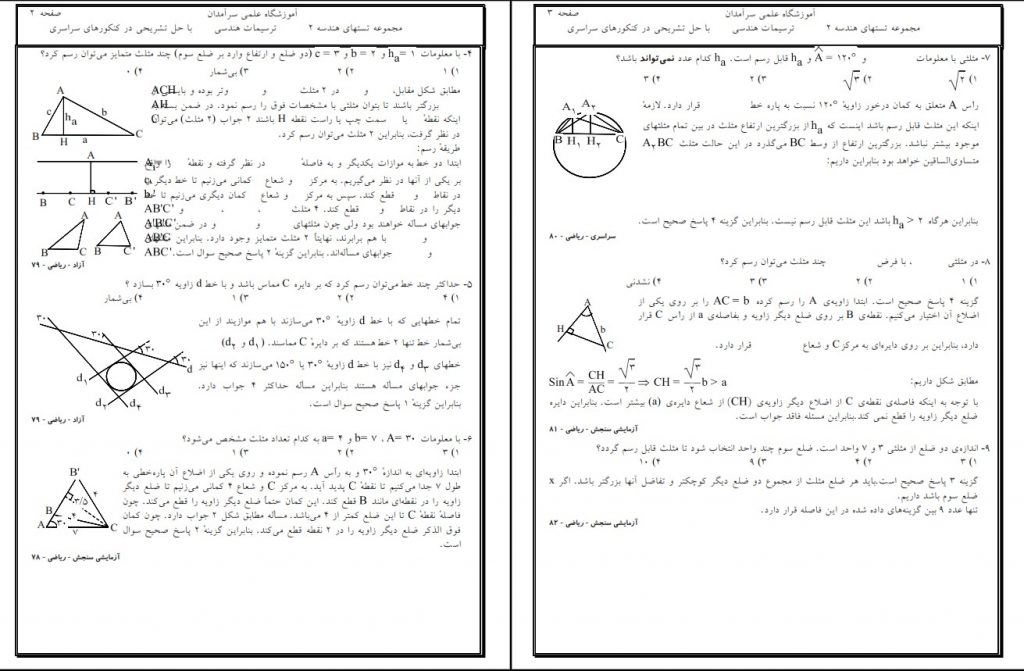 آموزشگاه علمی سرآمدان
صفحه ۲
مجموعه تستهای هندسه ۲ ترسیمات هندسی با حل تشریحی در کنکورهای سراسری
۴- با معلومات ha = ۱ و b = ۲ و c = ۳ (دو ضلع و ارتفاع وارد بر ضلع سوم) چند مثلث متمایز می‌توان رسم کرد؟
۱) ۱ ۲) ۲ ۳) بی‌شمار ۴) ۰
مطابق شکل مقابل، و در ۲ مثلث و وتر بوده و بایستی از
بزرگتر باشند تا بتوان مثلثی با مشخصات فوق را رسم نمود. در ضمن بسته به
اینکه نقطهٔ یا سمت چپ یا راست نقطهٔ H باشند ۲ جواب (۲ مثلث) می‌توان
در نظر گرفت، بنابراین ۲ مثلث می‌توان رسم کرد.
طریقهٔ رسم:
ابتدا دو خط به موازات یکدیگر و به فاصلهٔ در نظر گرفته و نقطهٔ را
بر یکی از آنها در نظر می‌گیریم. به مرکز و شعاع کمانی می‌زنیم تا خط دیگر را
در نقاط و قطع کند. سپس به مرکز و شعاع کمان دیگری می‌زنیم تا خط
دیگر را در نقاط و قطع کند. ۴ مثلث ، ، و
جوابهای مسأله خواهند بود ولی چون مثلثهای و و در ضمن مثلثهای
و با هم برابرند، نهایتاً ۲ مثلث متمایز وجود دارد. بنابراین مثلثهای
و جوابهای مسأله‌اند. بنابراین گزینهٔ ۲ پاسخ صحیح سوال است.
آزاد - ریاضی - ۷۹
۵- حداکثر چند خط می‌توان رسم کرد که بر دایره C مماس باشد و با خط d زاویه ۳۰° بسازد ؟
۱) ۴ ۲) ۲ ۳) ۱ ۴) بی‌شمار
تمام خطهایی که با خط d زاویهٔ ۳۰° می‌سازند با هم موازیند از این
بی‌شمار خط تنها ۲ خط هستند که بر دایرهٔ C مماسند. (d۱ و d۲)
خطهای d۳ و d۴ نیز با خط d زاویهٔ ۳۰° یا ۱۵۰° می‌سازند که اینها نیز
جزء جوابهای مسأله هستند بنابراین مسأله حداکثر ۴ جواب دارد.
بنابراین گزینهٔ ۱ پاسخ صحیح سوال است.
آزاد - ریاضی - ۷۹
۶- با معلومات A= ۳۰ ، b= ۷ و a= ۴ به کدام تعداد مثلث مشخص می‌شود؟
۱) ۳ ۲) ۲ ۳) ۱ ۴) ۰
ابتدا زاویه‌ای به اندازهٔ ۳۰° و به رأس A رسم نموده و روی یکی از اضلاع آن پاره‌خطی به
طول ۷ جدا می‌کنیم تا نقطهٔ C پدید آید. به مرکز C و شعاع ۴ کمانی می‌زنیم تا ضلع دیگر
زاویه را در نقطه‌ای مانند B قطع کند. این کمان حتماً ضلع دیگر زاویه را قطع می‌کند. چون
فاصلهٔ نقطهٔ C تا این ضلع کمتر از ۴ می‌باشد. مسأله مطابق شکل ۲ جواب دارد. چون کمان
فوق الذکر ضلع دیگر زاویه را در ۲ نقطه قطع می‌کند. بنابراین گزینهٔ ۲ پاسخ صحیح سوال
است.
آزمایشی سنجش - ریاضی - ۷۸
آموزشگاه علمی سرآمدان
صفحه ۳
مجموعه تستهای هندسه ۲ ترسیمات هندسی با حل تشریحی در کنکورهای سراسری
۷- مثلثی با معلومات و A = ۱۲۰° و ha قابل رسم است. ha کدام عدد نمی‌تواند باشد؟
۱) √۲ ۲) √۳ ۳) ۲ ۴) ۳
رأس A متعلق به کمان درخور زاویهٔ ۱۲۰° نسبت به پاره خط قرار دارد. لازمهٔ
اینکه این مثلث قابل رسم باشد اینست که ha از بزرگترین ارتفاع مثلث در بین تمام مثلثهای
موجود بیشتر نباشد. بزرگترین ارتفاع از وسط BC می‌گذرد در این حالت مثلث A۲BC
متساوی‌الساقین خواهد بود بنابراین داریم:
بنابراین هرگاه ha > ۲ باشد این مثلث قابل رسم نیست. بنابراین گزینه ۴ پاسخ صحیح است.
سراسری - ریاضی - ۸۰
۸- در مثلثی ، با فرض چند مثلث می‌توان رسم کرد؟
۱) ۱ ۲) ۲ ۳) ۳ ۴) نشدنی
گزینه ۴ پاسخ صحیح است. ابتدا زاویه‌ی A را رسم کرده AC = b را بر روی یکی از
اضلاع آن اختیار می‌کنیم. نقطه‌ی B بر روی ضلع دیگر زاویه و بفاصله‌ی a از رأس C قرار
دارد، بنابراین بر روی دایره‌ای به مرکز C و شعاع قرار دارد.
مطابق شکل داریم: Sin A = CH/AC = √۳/۲ ⇒ CH = √۳/۲ b > a
با توجه به اینکه فاصله‌ی نقطه‌ی C از اضلاع دیگر زاویه‌ی (CH) از شعاع دایره‌ی (a) بیشتر است. بنابراین دایره
ضلع دیگر زاویه را قطع نمی کند.بنابراین مسئله فاقد جواب است.
آزمایشی سنجش - ریاضی - ۸۱
۹- اندازه‌ی دو ضلع از مثلثی ۳ و ۷ واحد است. ضلع سوم چند واحد انتخاب شود تا مثلث قابل رسم گردد؟
۱) ۳ ۲) ۴ ۳) ۹ ۴) ۱۰
گزینه ۳ پاسخ صحیح است.باید هر ضلع مثلث از مجموع دو ضلع دیگر کوچکتر و تفاضل آنها بزرگتر باشد. اگر x
ضلع سوم باشد داریم.
تنها عدد ۹ بین گزینه‌های داده شده در این فاصله قرار دارد.
آزمایشی سنجش - ریاضی - ۸۲